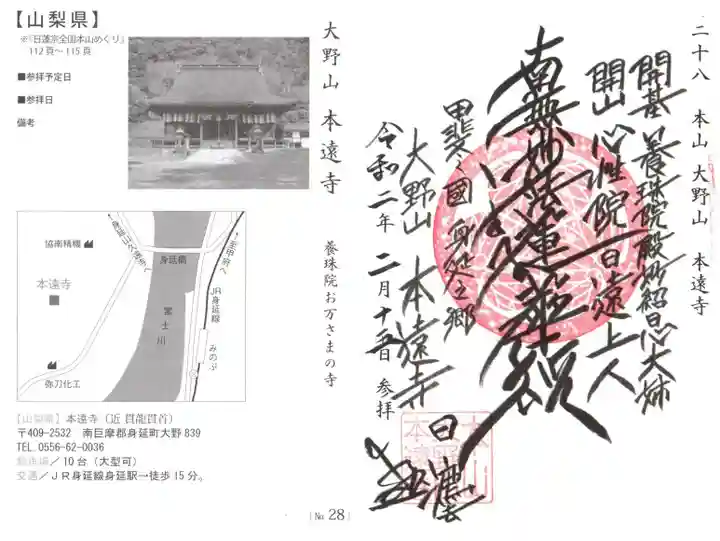 【山梨県】
※『日蓮宗全国本山めぐり』
112頁〜115頁
■参拝予定日
■参拝日
備考
大野山 本遠寺
養珠院お万さまの寺
協南精機
身延山久遠寺へ
身延橋
至甲府へ
本遠寺
富士川
JR身延線
みのぶ
弥刀化工
【山梨県】本遠寺
〒409-2532 南巨摩郡身延町大野839
TEL.0556-62-0036
駐車場／10台（大型可）
交通／JR身延線身延駅→徒歩15分。
[No. 28]
二十八 本山 大野山 本遠寺
開基 養珠院殿妙紹日心大姉
開山 心性院日遠上人
南無妙法蓮華経
甲斐之國 身延之郷
大野山 本遠寺
令和二年 二月十五日 参拝